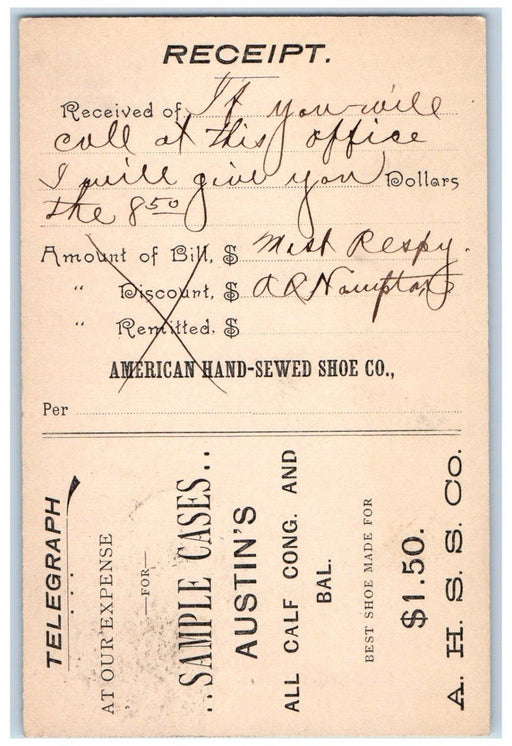 RECEIPT.
Received of If you will
call at this office
I will give you Dollars
the 8 50
Amount of Bill, $ Most Respy.
" Discount, $ A Q Hampton
" Remitted. $
AMERICAN HAND-SEWED SHOE CO.,
Per
TELEGRAPH
AT OUR EXPENSE
—FOR—
..SAMPLE CASES..
AUSTIN'S
ALL CALF CONG. AND
BAL.
BEST SHOE MADE FOR
$1.50.
A. H. S. S. Co.